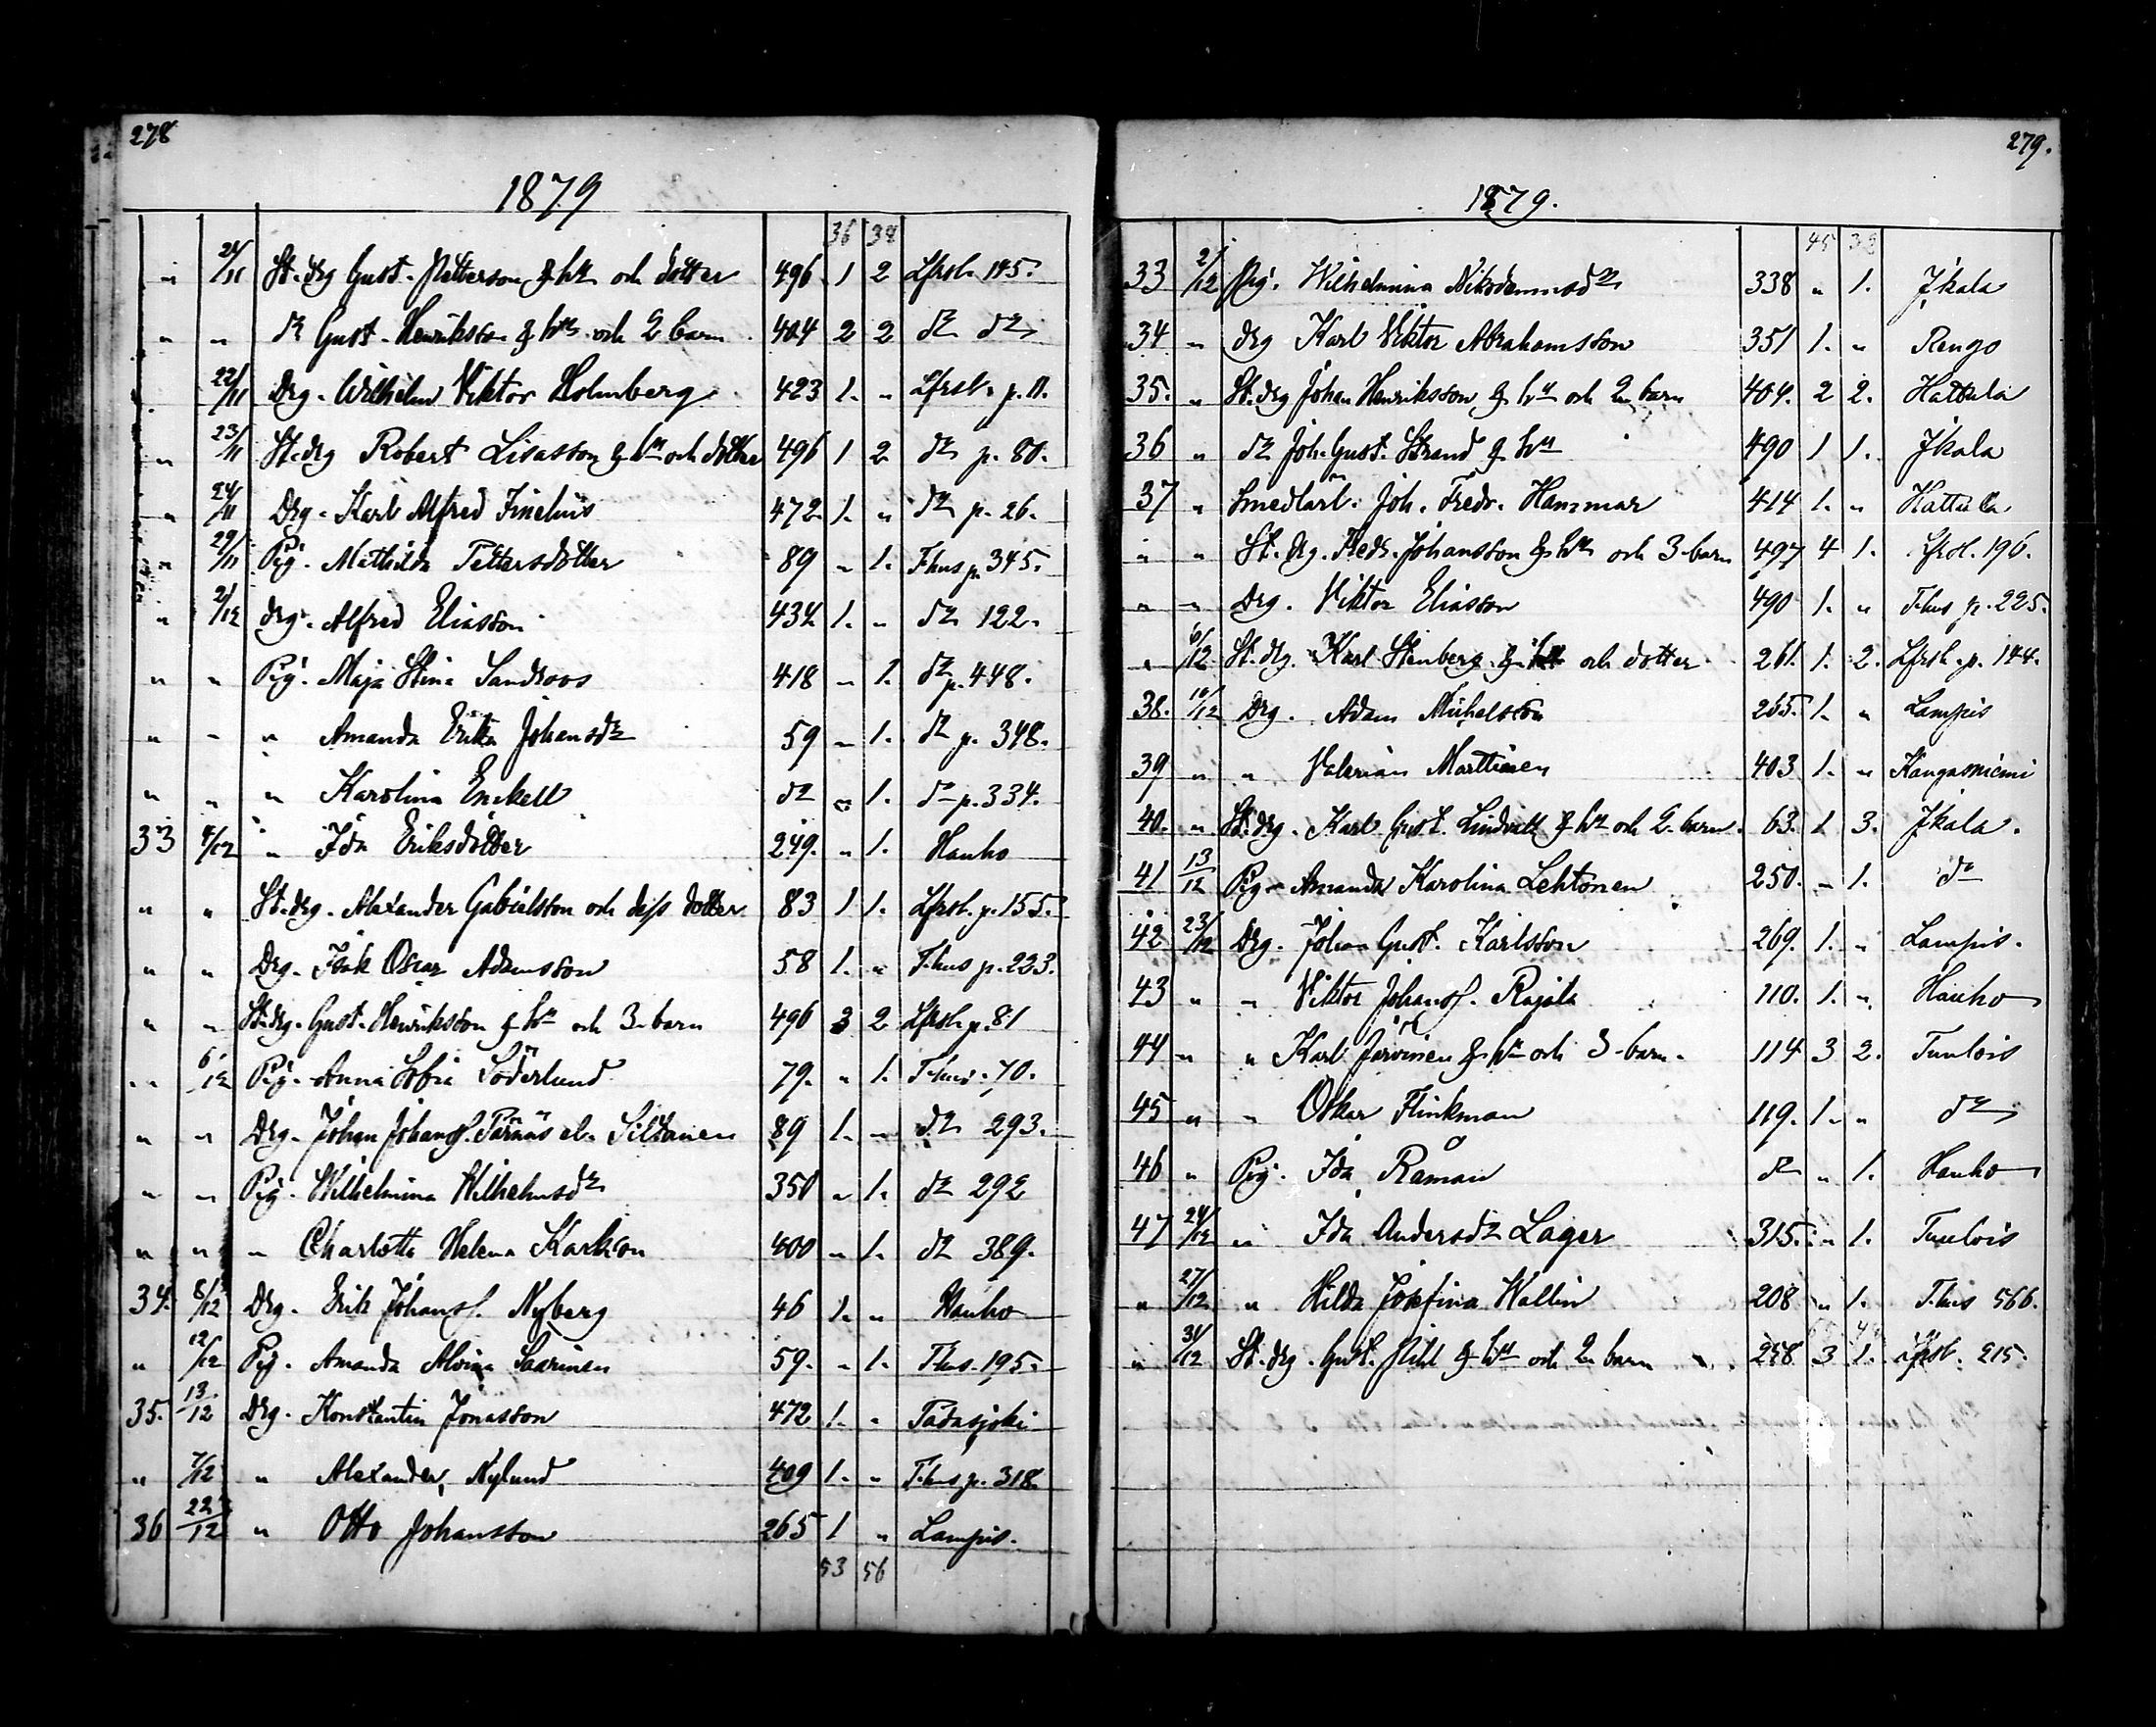 278
1879
36 34
" 21/11 St. drg Gust. Pettersson & h:u och dotter 496 1 2 Lfrsl. 145.
" " d:o Gust. Henriksson & h:u och 2 barn 404 2 2 d:o d:o
" 22/11 Drg. Wilhelm Viktor Holmberg 423 1. " Lfrsl. p. 11.
" 23/11 St. drg Robert Lisasson & h:u och dotter 496 1 2 d:o p. 80.
" 24/11 Drg. Karl Alfred Finelius 472 1. " d:o p. 26.
" 29/11 Pig. Mathilda Pettersdotter 89 " 1. F.hus p. 345.
" 2/12 drg. Alfred Eliasson 434 1. " d:o 122.
" " Pig. Maja Stina Sandroos 418 " 1. d:o p. 448.
" " " Amanda Erika Johansd:r 59 " 1. d:o p. 348.
" " " Karolina Enckell d:o " 1. d:o p. 334.
33 4/12 " Ida Eriksdotter 249. " 1. Hauho
" " St. drg. Alexander Gabrielsson och dess dotter 83 1 1. Lfrsl. p. 155.
" " Drg. Isak Oscar Adamsson 58 1. " F.hus p. 223.
" " St. drg. Gust. Henriksson & h:u och 3 barn 496 3 2 Lfrsl. p. 81
" 6/12 Pig. Anna Sofia Söderlund 79. " 1. F.hus. 70.
" " Drg. Johan Johanss. Pärnäs el. Siltanen 89 1. " d:o 293.
" " Pig. Wilhelmina Wilhelmsd:r 350 " 1. d:o 292
" " " Charlotta Helena Karlsson 400 " 1. d:o 389.
34. 8/12 Drg. Erik Johanss. Nyberg 46 1. " Hauho
" 12/12 Pig. Amanda Alvina Saarinen 59. " 1. F.hus. 195.
35. 13/12 Drg. Konstantin Jonasson 472 1. " Padasjoki
" 7/12 " Alexander Nylund 409 1. " F.hus p. 318.
36 22/12 " Otto Johansson 265 1 " Lampis.
53 56
279.
1879.
45 38
33 2/12 Pig. Wilhelmina Nikodemusd:r 338 " 1. Jkala
34 " drg Karl Viktor Abrahamsson 351 1. " Rengo
35. " St. drg Johan Henriksson & h:u och 2 barn 404. 2 2. Hattula
36 " d:o Joh. Gust. Strand & h:u 490 1 1. Jkala
37 " Smedlärl. Joh. Fredr. Hammar 414 1. " Hattula
" " St. drg. Fredr. Johansson & h:u och 3 barn 497 4 1. Lfrsl. 196.
" " Drg. Viktor Eliasson 490 1. " F.hus p. 225.
" 6/12 St. drg. Karl Stenberg & h:u och dotter 261. 1. 2. Lfrsl. p. 144.
38. 10/12 Drg. Adam Michelsson 265. 1. " Lampis
39 " " Valerian Marttinen 403 1. " Kangasniemi
40. " St. drg. Karl Gust. Lindvall & h:u och 2 barn. 63. 1 3. Jkala.
41 13/12 Pig. Amanda Karolina Lehtonen 250. " 1. d:o
42 23/12 Drg. Johan Gust. Karlsson 269. 1. " Lampis.
43 " " Viktor Johanss. Rajala 110. 1. " Hauho
44 " " Karl Järvinen & h:u och 3 barn. 114 3 2. Tuulois
45 " " Oskar Flinkman 119. 1. " d:o
46 " Pig. Ida Råman d:o " 1. Hauho
47 24/12 " Ida Andersd:r Lager 315. " 1. Tuulois
" 27/12 " Hilda Josefina Wallin 208 " 1. F.hus 566.
" 31/12 St. drg. Gust. Pihl & h:u och 2 barn 258 3 1. Lfrsl. 215.